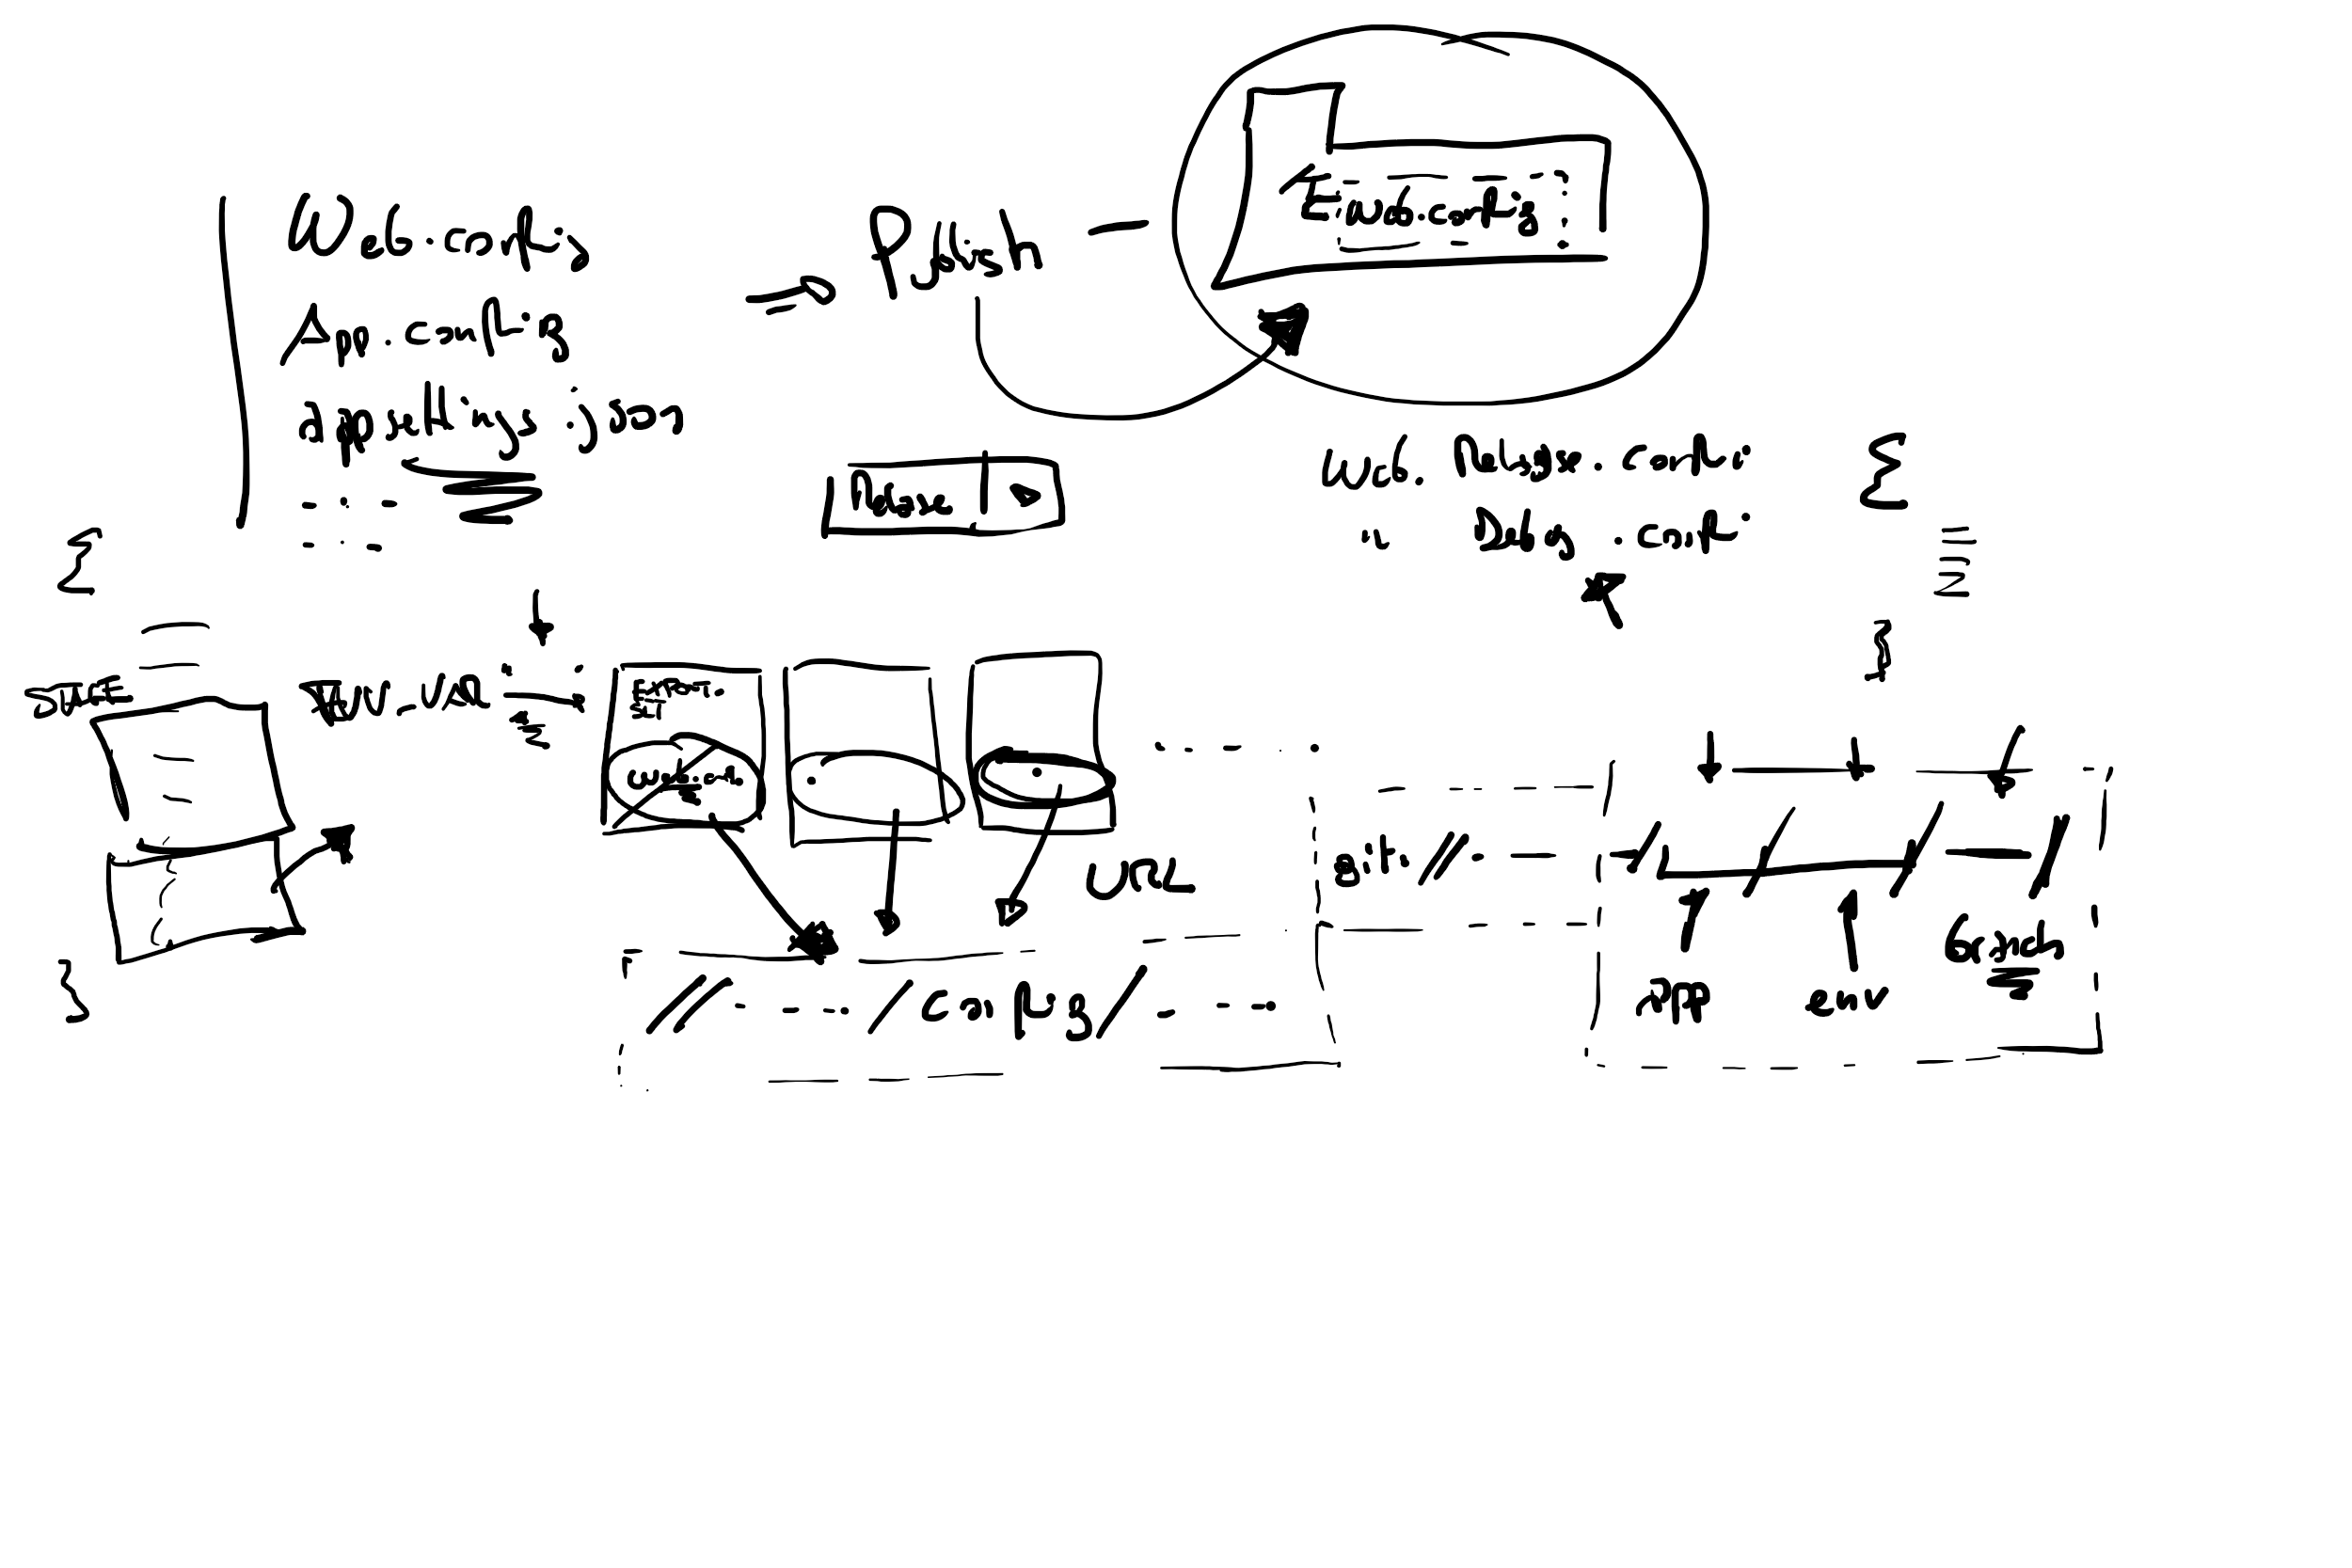 Web.config
App.config
appsettings.json
Publish
web.config
Release
Web. Release.config
" Debug.config
web.
URL
//- - - - -/config/- - -
git://-
app
env
branch